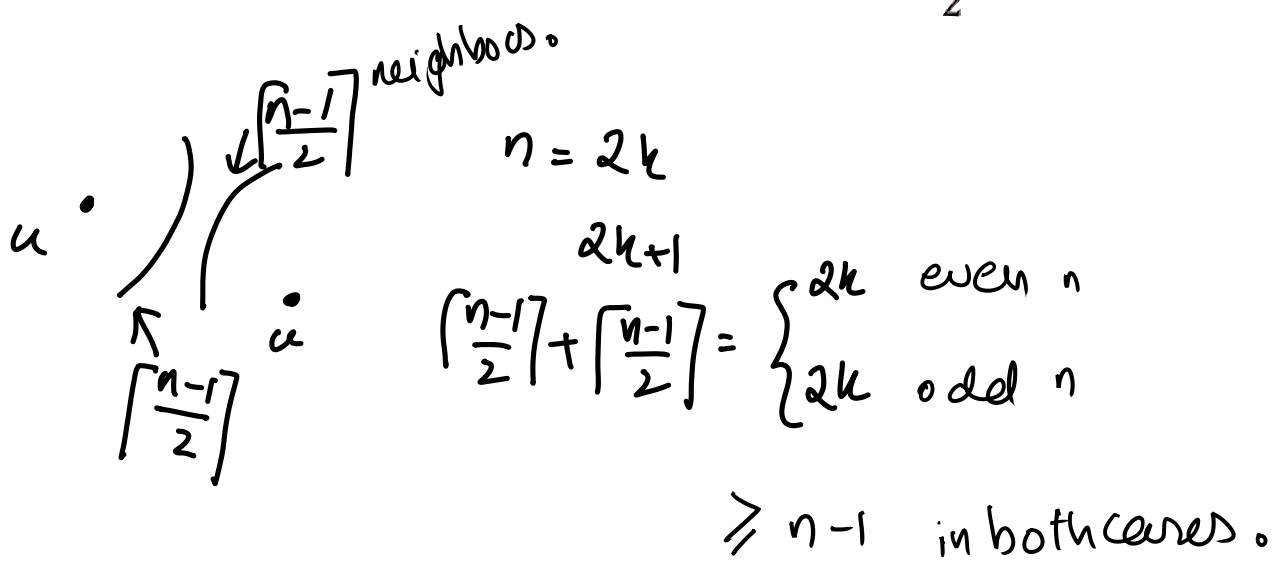 2
⌈(n-1)/2⌉ neighbors.
n = 2k
u
2k+1
u
⌈(n-1)/2⌉
⌈(n-1)/2⌉ + ⌈(n-1)/2⌉ = { 2k even n
2k odd n
⩾ n-1 in both cases.